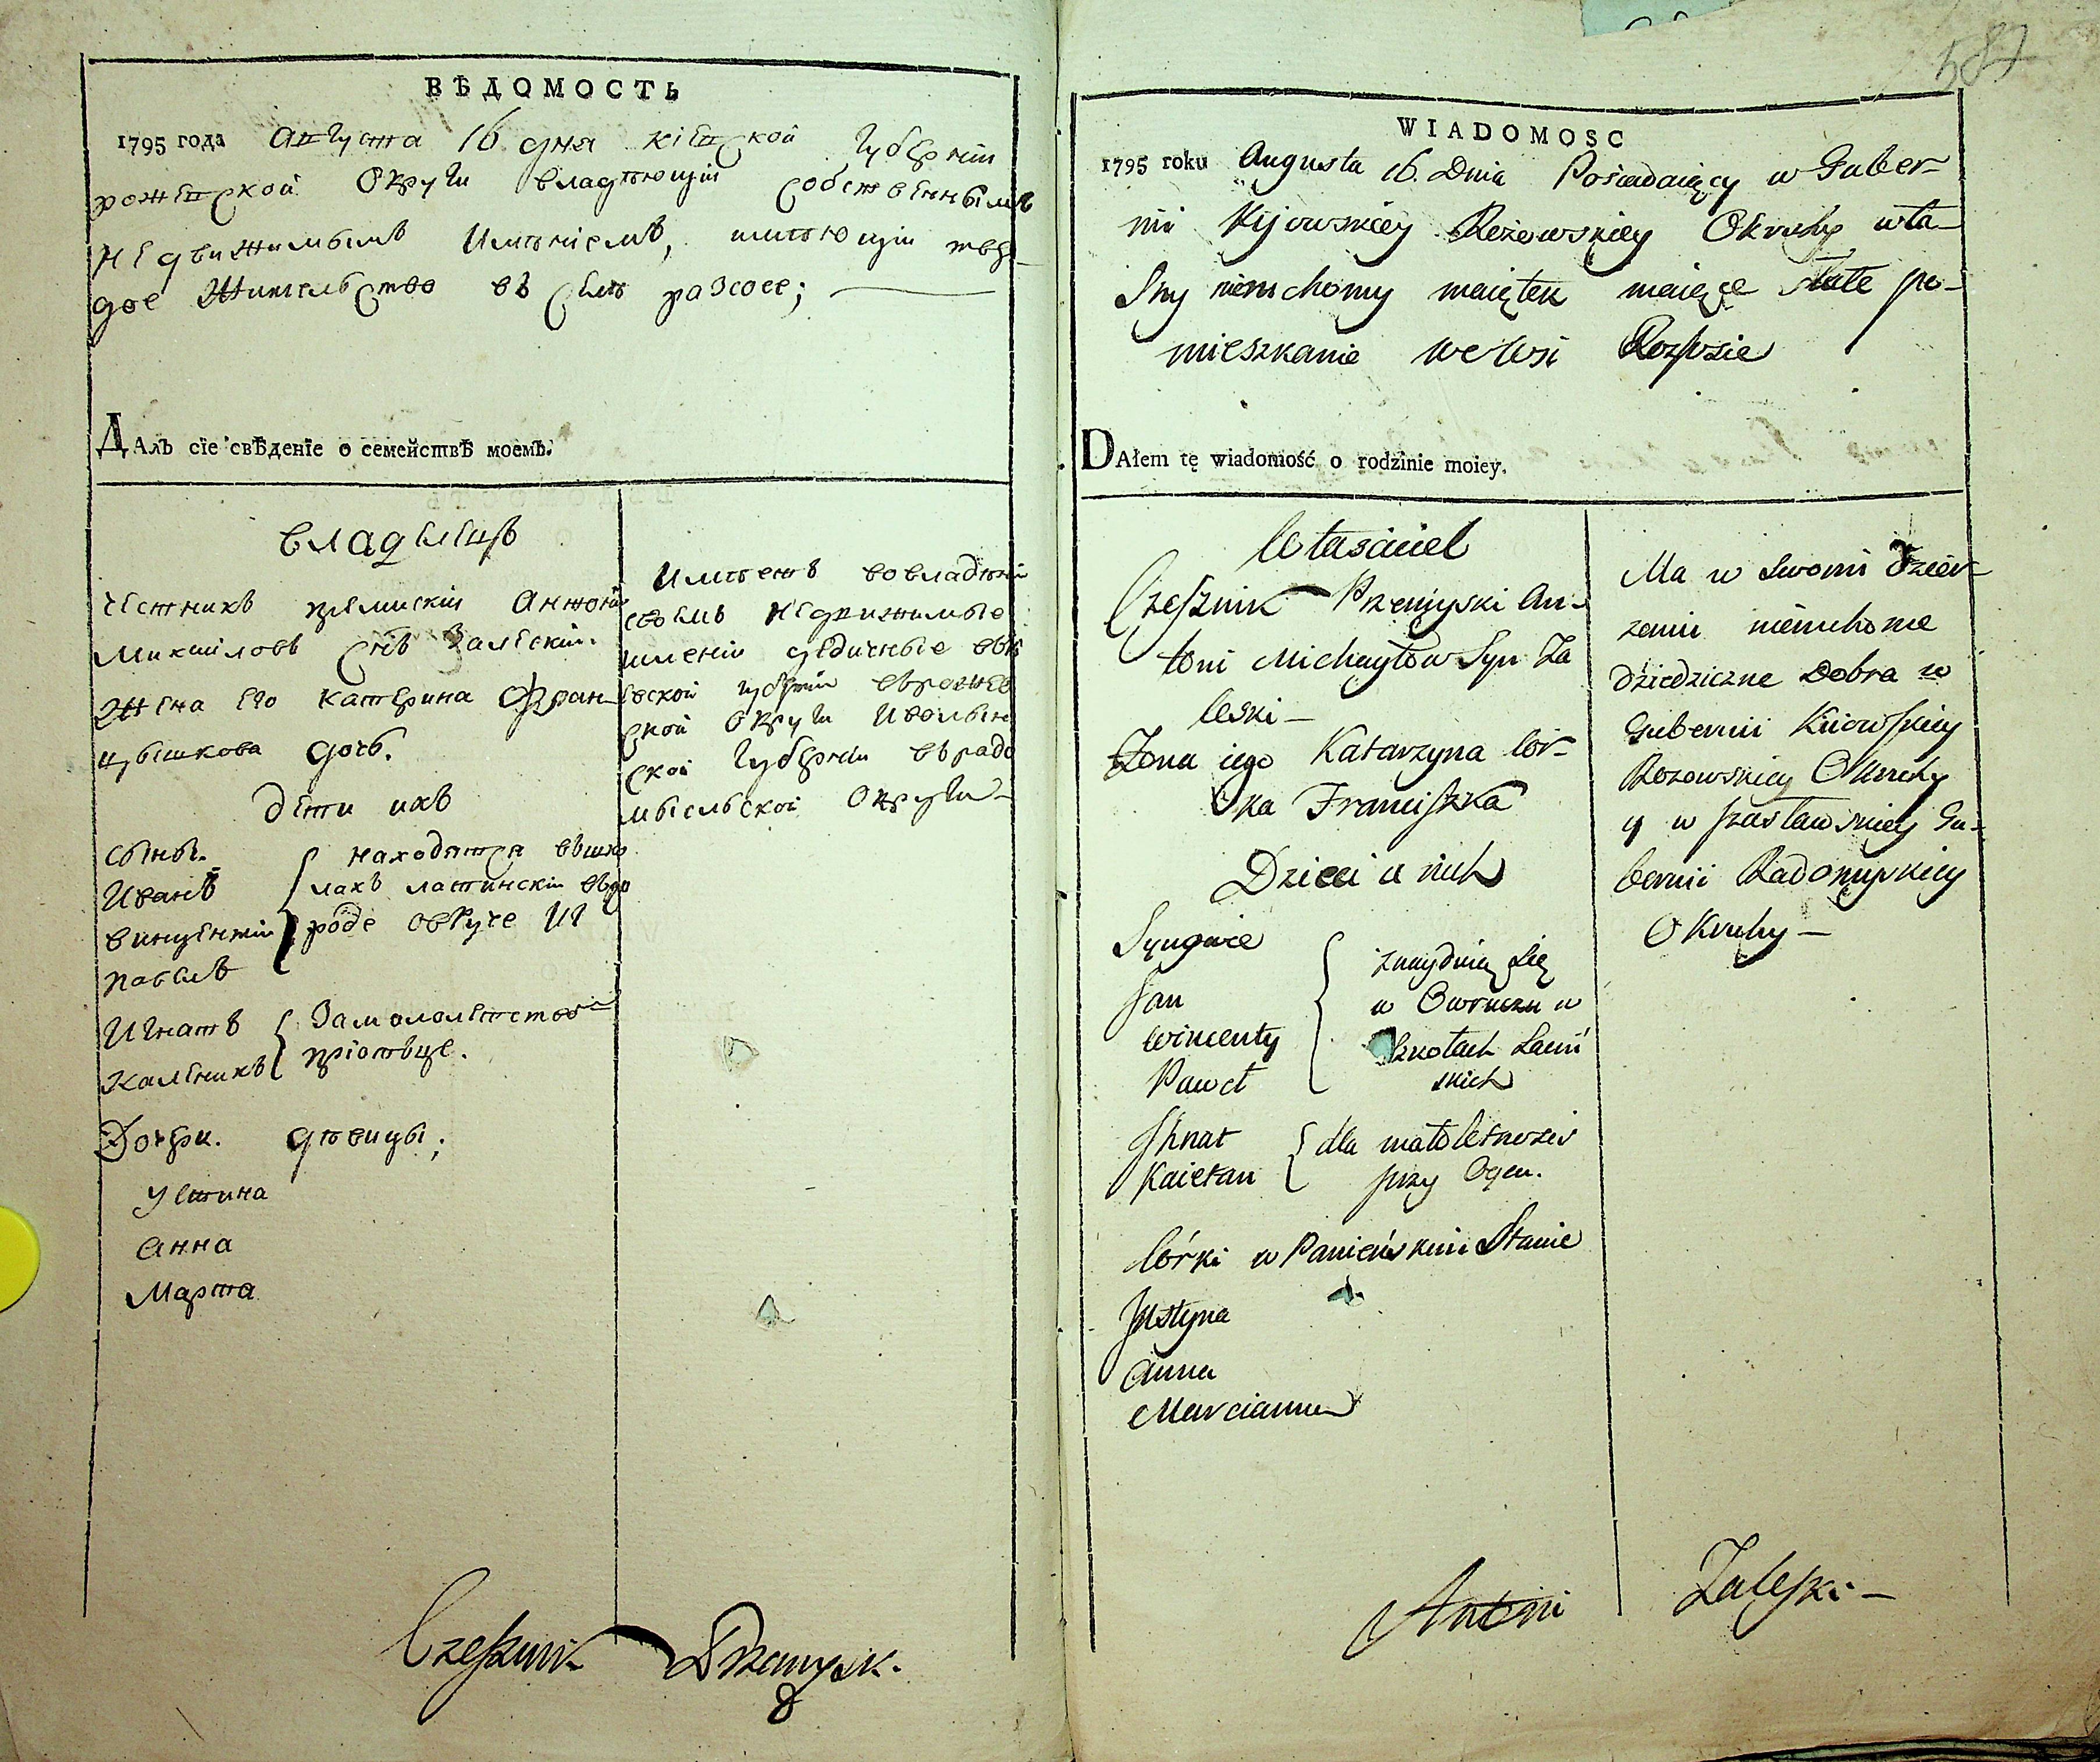 ВѢДОМОСТЬ
1795 года Августа 16 дня кіевской губерніи
рожевской округи владѣющій собственнымъ
недвижимымъ имѣніемъ, имѣющій твер-
дое жительство въ селѣ
ДАлъ сїе свѣденїе о семействѣ моемъ.
владелецъ
чесникъ премискій Антоній
Михайловъ снъ Залескій.
жена его катерина Фран-
цышкова дочь.
дети ихъ
сыны.
Иванъ
винцентій
павелъ
находятся въшко
лахъ латинскій въго
роде овруче
Игнатъ
замололетством
приотъце.
Дочери. девицы;
Устина
Анна
Марта
Имѣетъ вовладѣній
своемъ недвижимые
имений дедичные въкі
евской губерніи върожев
ской округи Иволын
ской губерніи върадо
мысльской округи
Czesznik Przemysk.
587
WIADOMOSC
1795 roku Augusta 16. Dnia Posiadaiący w Guber-
nii Kijowskiey Rożowskiey Okruhy wła-
sny nieruchomy maiątek maiące stałe po-
mieszkanie we wsi
DAłem tę wiadomość o rodzinie moiey.
Własciciel
Czesznik Przemyski An-
toni Michayłow Syn Za
leski -
Żona iego Katarzyna Cór-
ka Franciszka
Dzieci u nich
Synowie
Jan
Wincenty
Paweł
znaydują się
w Owruczu w
szkołach Łaciń
skich
Ihnat
Kaietan
dla małoletnosci
przy Oycu.
Córki w Panieńskim Stanie
Justyna
Anna
Marcianna
Ma w swoim Dzier-
zeniu nieruchome
dziedziczne Dobra w
Gubernii Kiiowskiey
Rozowskiey Okruhy
y w Zasławskiey Gu-
bernii Radomyskiey
Okruhy -
Antoni Zaleski -